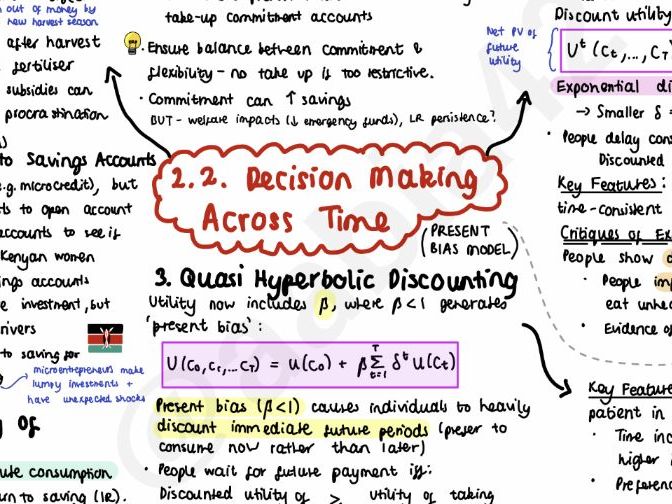 out of money by
new harvest season
after harvest
fertiliser
subsidies can
procrastination
take-up commitment accounts
Ensure balance between commitment &
flexibility - no take up if too restrictive.
Commitment can ↑ savings
BUT - welfare impacts (↓ emergency funds), LR persistence?
Net PV of
future
utility
Discount utility
U^t (C_t,..., C_T)
Exponential di
→ Smaller δ =
People delay cons
Discounted
Key Features:
time-consistent
Critiques of Ex
People show d
People imp
eat unhea
Evidence of
to Savings Accounts
e.g. microcredit), but
ts to open account
accounts to see if
Kenyan women
ngs accounts
e investment, but
rivers
to saving for
microentrepreneurs make
lumpy investments +
have unexpected shocks
y of
ute consumption
urn to saving (IR).
2.2. Decision Making
Across Time
(PRESENT
BIAS MODEL)
3. Quasi Hyperbolic Discounting
Utility now includes β, where β<1 generates
'present bias':
U(C₀, C₁,... C_T) = u(C₀) + β Σ_{t=1}^{T} δ^t u(C_t)
Present bias (β<1) causes individuals to heavily
discount immediate future periods (prefer to
consume now rather than later)
People wait for future payment iff:
Discounted utility of > utility of taking
Key Feature
patient in
Time inc
higher i
Preferenc